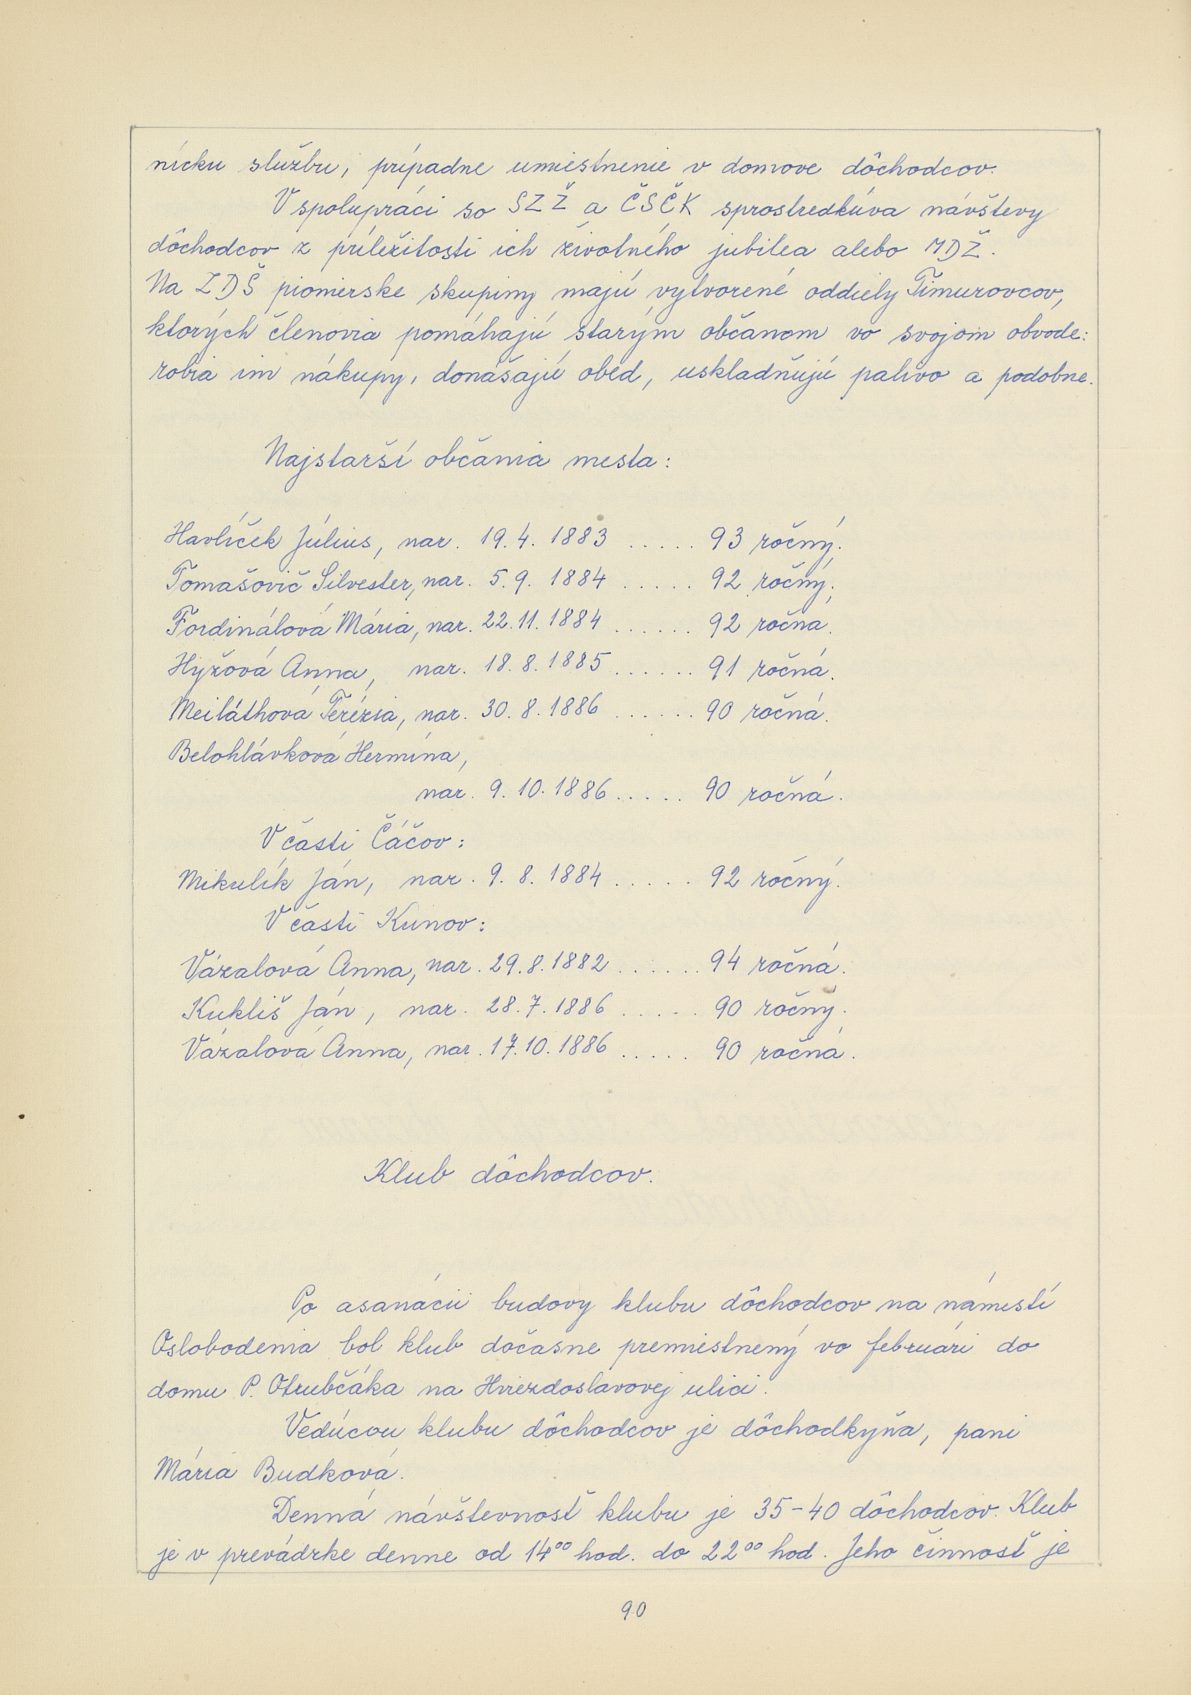 nícku službu, prípadne umiestnenie v domove dôchodcov.
V spolupráci so SZŽ a ČSČK sprostredkúva návštevy
dôchodcov z príležitosti ich životného jubilea alebo MDŽ.
Na ZDŠ pionierske skupiny majú vytvorené oddiely Timurovcov,
ktorých členovia pomáhajú starým občanom vo svojom obvode:
robia im nákupy, donášajú obed, uskladňujú palivo a podobne.
Najstarší občania mesta:
Havlíček Július, nar. 19.4.1883 ..... 93 ročný.
Tomašovič Silvester, nar. 5.9.1884 ..... 92 ročný.
Fordinálová Mária, nar. 22.11.1884 ...... 92 ročná.
Hyžová Anna, nar. 18.8.1885 ...... 91 ročná.
Meiláthová Terézia, nar. 30.8.1886 ...... 90 ročná.
Belohlávková Hermína,
nar. 9.10.1886 ..... 90 ročná.
V časti Čáčov:
Mikulík Ján, nar. 9.8.1884 ..... 92 ročný.
V časti Kunov:
Vázalová Anna, nar. 29.8.1882 ...... 94 ročná.
Kukliš Ján, nar. 28.7.1886 ..... 90 ročný.
Vázalová Anna, nar. 17.10.1886 ..... 90 ročná.
Klub dôchodcov.
Po asanácii budovy klubu dôchodcov na námestí
Oslobodenia bol klub dočasne premiestnený vo februári do
domu P. Otrubčáka na Hviezdoslavovej ulici.
Vedúcou klubu dôchodcov je dôchodkyňa, pani
Mária Budková.
Denná návštevnosť klubu je 35-40 dôchodcov. Klub
je v prevádzke denne od 14⁰⁰ hod. do 22⁰⁰ hod. Jeho činnosť je
90